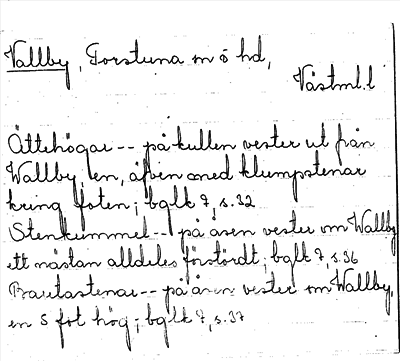 Vallby, Torstuna m ö hd,
Västml.l
Ättehögar -- på kullen vester ut från
Wallby, en, äfven med klumpstenar
kring foten; bglk 7, s.32
Stenkummel -- på åsen vester om Wallby
ett nästan alldeles förstördt; bglk 7, s.36
Bautastenar -- på åsen vester om Wallby,
en 5 fot hög; bglk 7, s.37